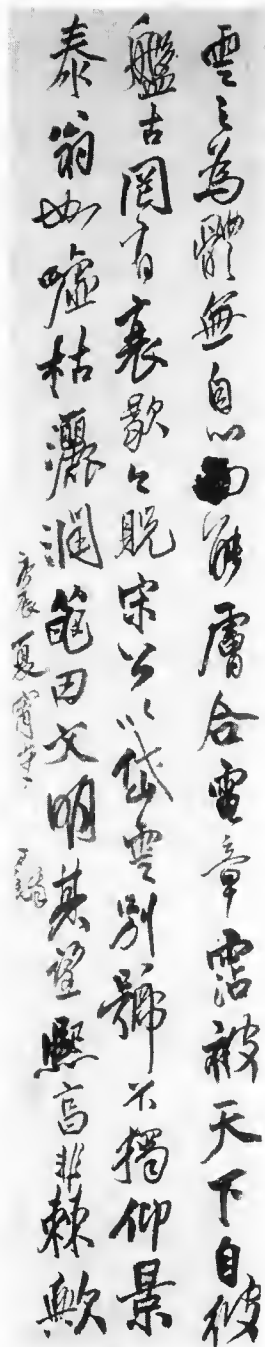 雲之為體無自心而能膚合雷章霑被天下自彼
盤古罔有衰歇今貺宗公以岱雲別號不獨仰景
泰翁如噓枯灑潤龜田文明其望熙高非棘歟
庚辰夏宵生